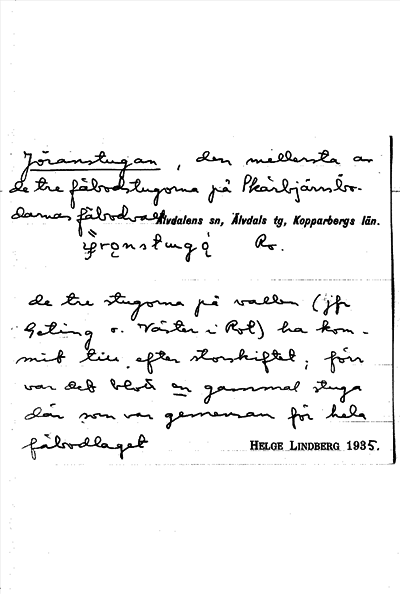 Jöranstugan, den mellersta av
de tre fäbodstugorna på Skärbjärnsbo-
darnas fäbodvall Älvdalens sn, Älvdals tg, Kopparbergs län.
Ro.
de tre stugorna på vallen (jfr
Geting o. Väster i Rot) ha kom-
mit till efter storskiftet; förr
var det blott en gammal stuga
där som var gemensam för hela
fäbodlaget
HELGE LINDBERG 1935.